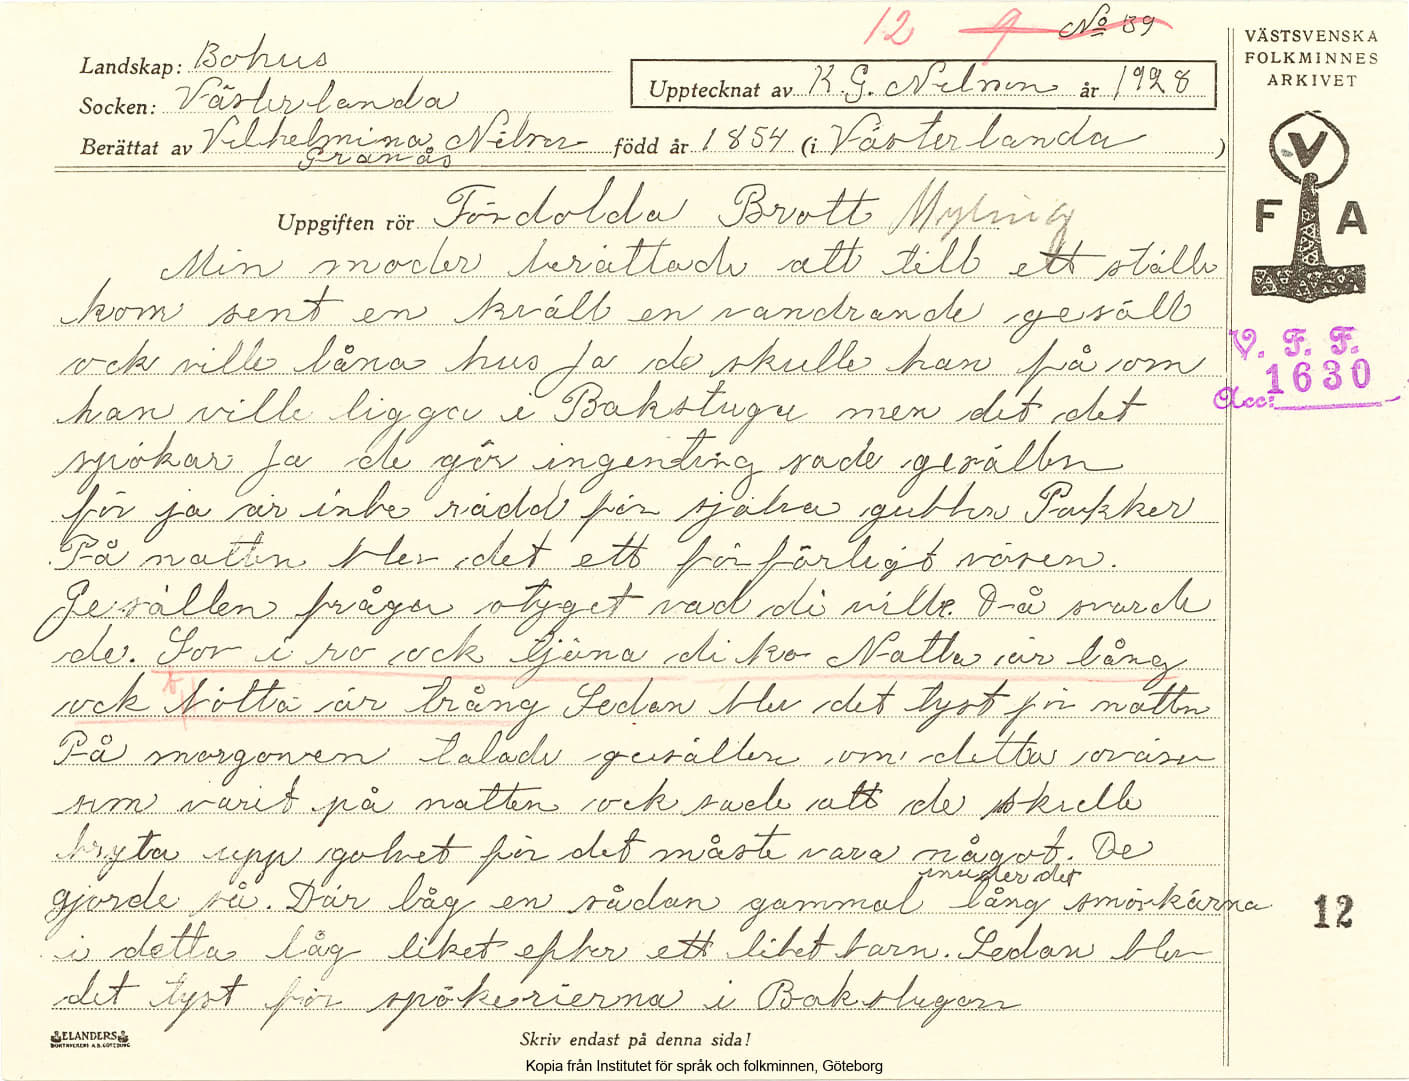 12 9 No 39
Landskap: Bohus
Socken: Västerlanda
Upptecknat av K. G. Nilson år 1928
Berättat av Vilhelmina Nilson född år 1854 (i Västerlanda)
Granås
Uppgiften rör Fördolda Brott Myling
Min moder berättade att till ett ställe
kom sent en kväll en vandrande gesäll
ock ville låna hus Ja de skulle han få om
han ville ligga i Bakstuga men det det
spökar Ja de gör ingenting sade gesällen
för ja är inte rädd för själva gubben Pakker
På natten blev det ett förfärligt väsen.
Gesällen frågar styget vad di ville. Då svarde
de. Sov i ro ock tjäna di ko Natta är lång
ock Nötta är trång Sedan blev det tyst för natten
t
På morgonen talade gesällen om detta oväsen
som varit på natten ock sade att de skulle
bryta upp golvet för det måste vara något. De
gjorde så. Där låg en sådan gammal lång smörkärna
under det
i detta låg liket efter ett litet barn. Sedan blev
det tyst för spökerierna i Bakstugan
ELANDERS
BOKTRYCKERI A.B. GÖTEBORG
Skriv endast på denna sida!
VÄSTSVENSKA
FOLKMINNES
ARKIVET
V
F A
V. F. F.
1630
Acc:
12
Kopia från Institutet för språk och folkminnen, Göteborg